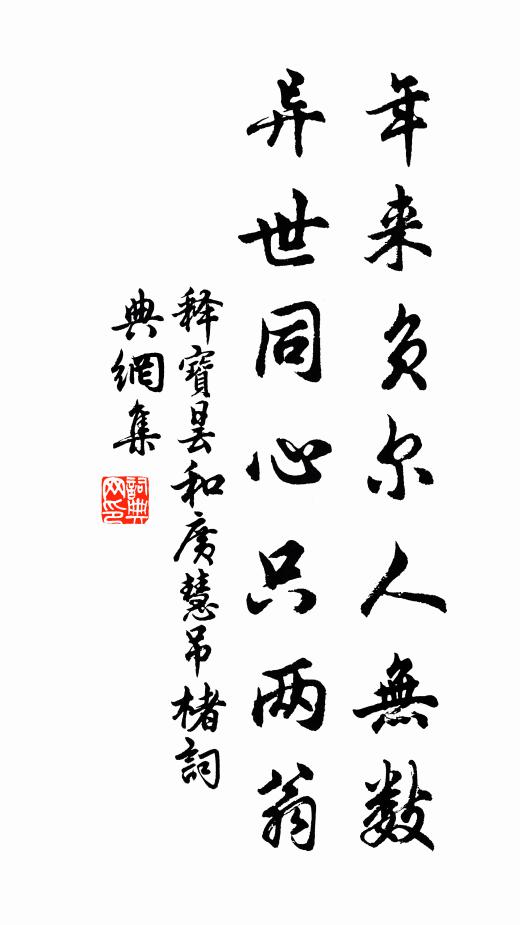 年来负尔人無数
异世同心只两翁
释寶昙和廣慧吊楮詞
典網集
詞典网印